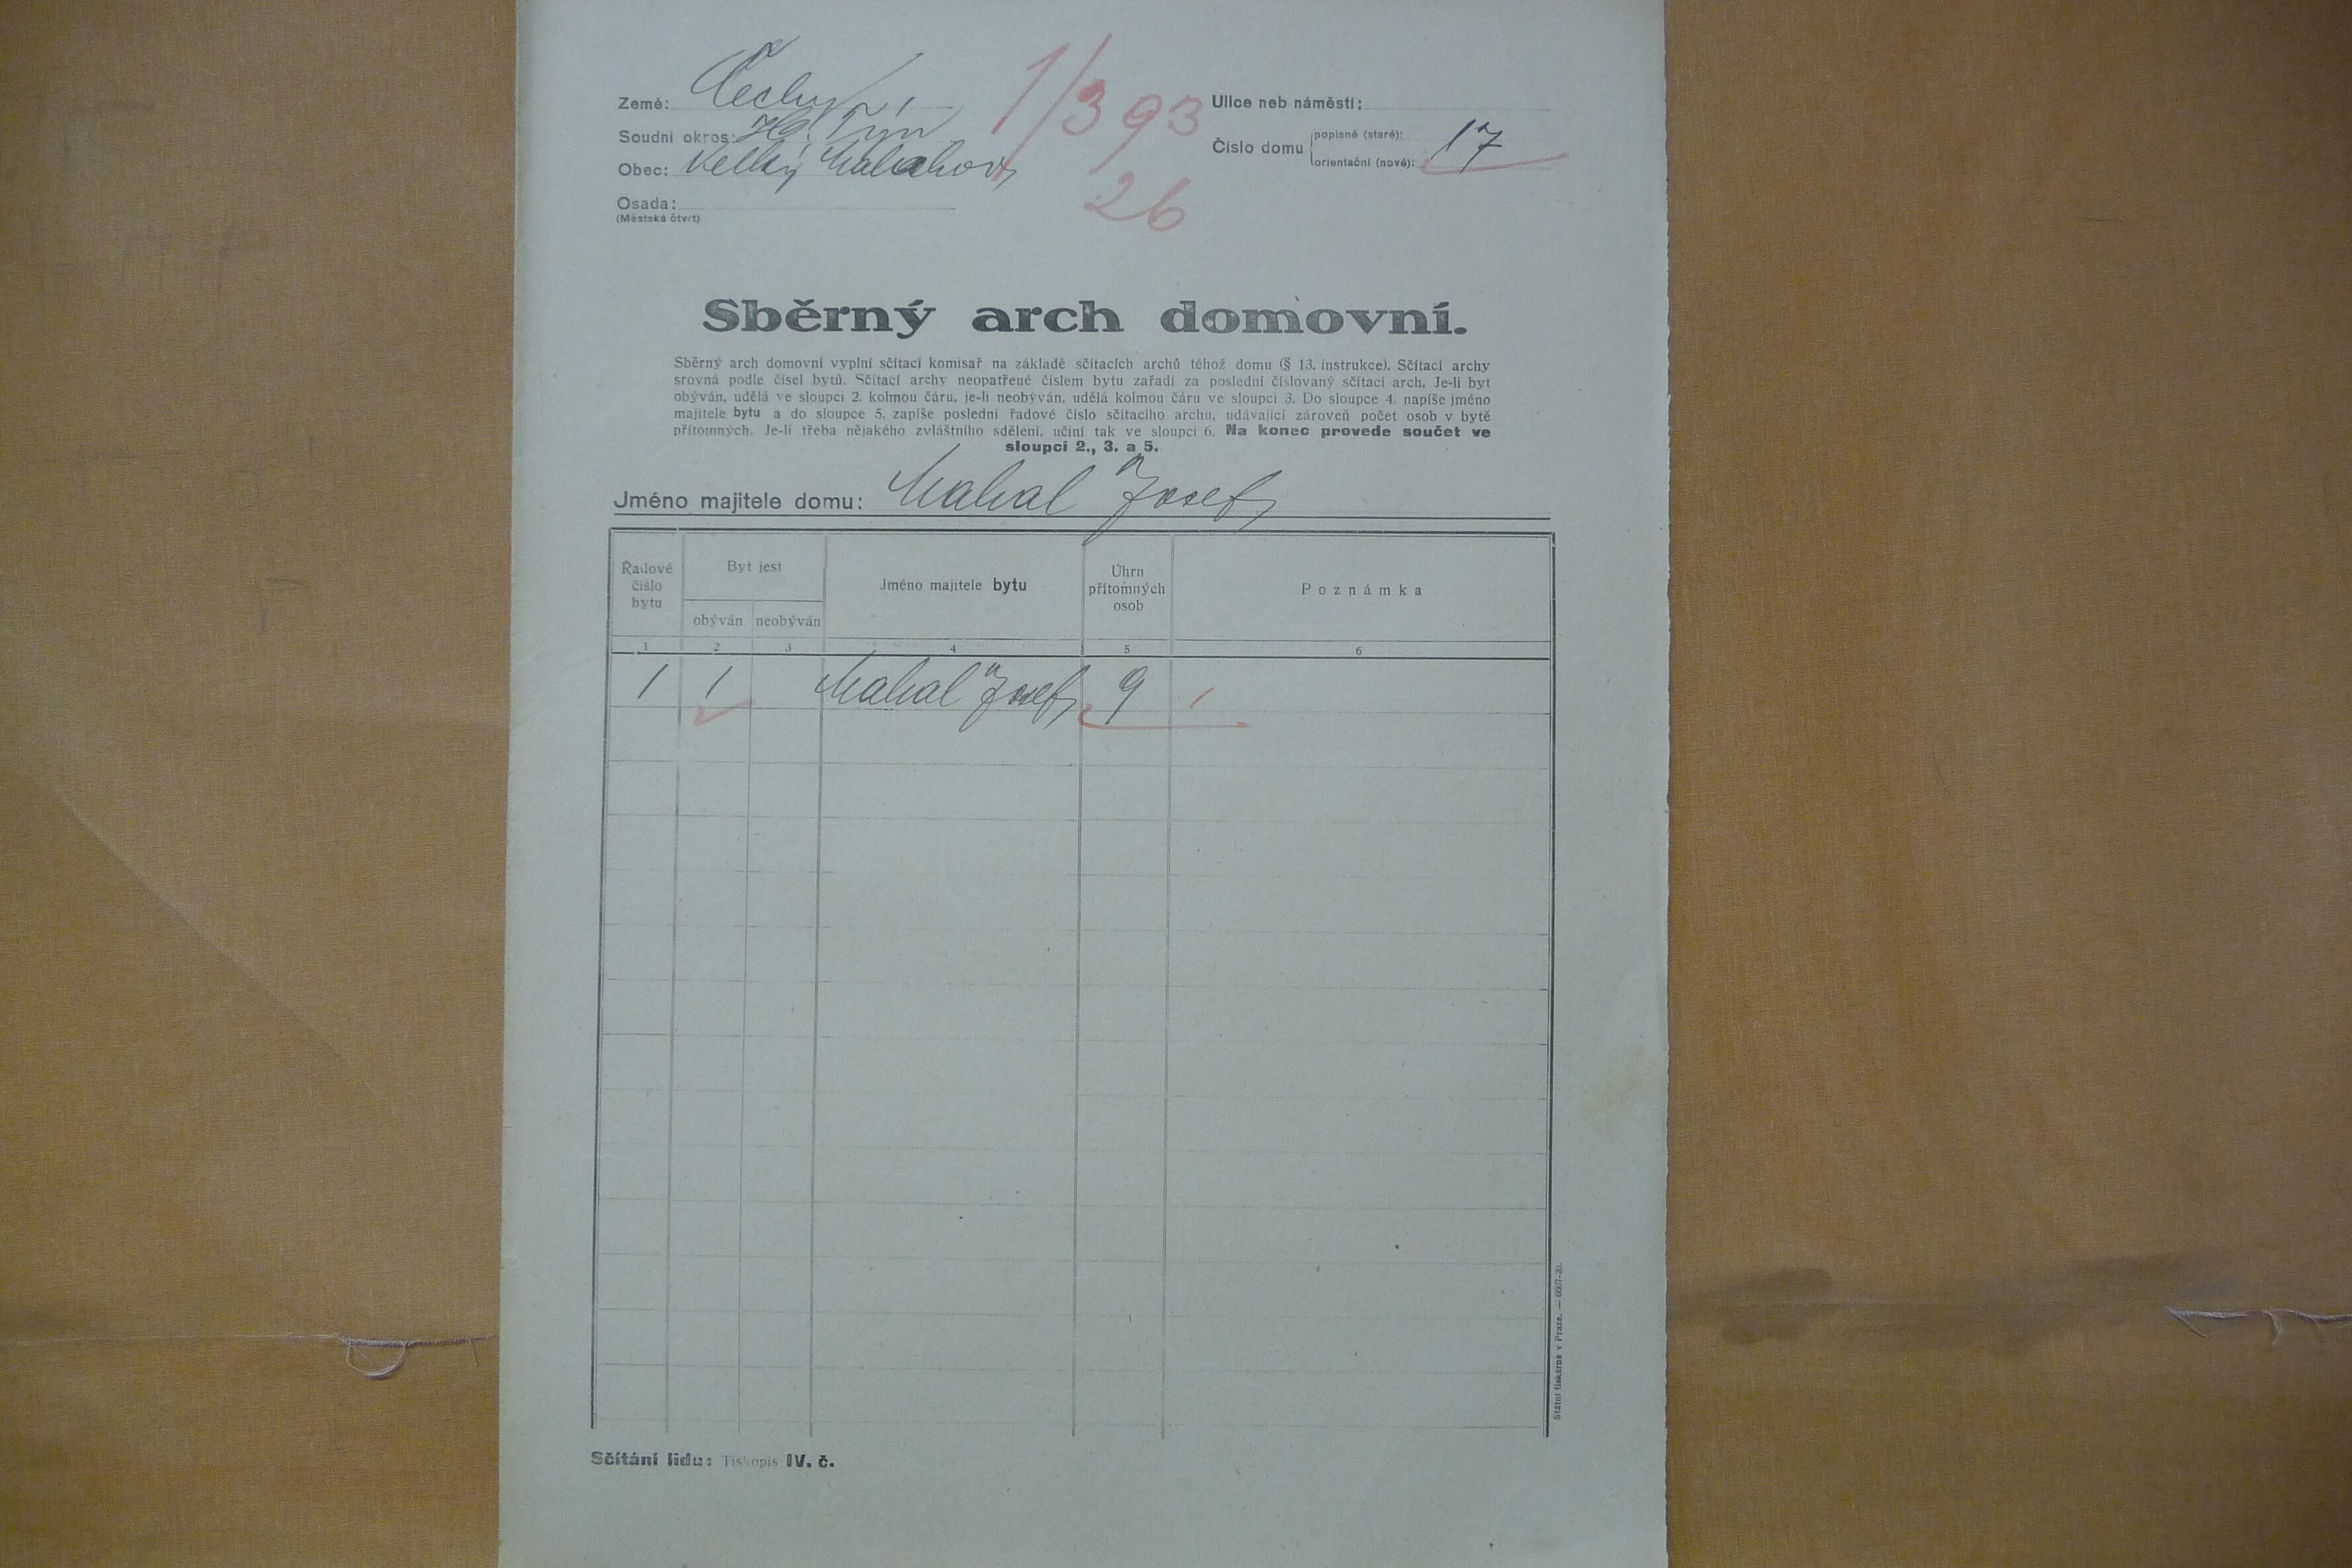 Země: Čechy
1/393
Ulice neb náměstí:
Soudní okres: Hš. Týn
Číslo domu
popisné (staré): 17
orientační (nové):
Obec: Velký Malahov
26
Osada:
(Městská čtvrt)
Sběrný arch domovní.
Sběrný arch domovní vyplní sčítací komisař na základě sčítacích archů téhož domu (§ 13. instrukce). Sčítací archy
srovná podle čísel bytů. Sčítací archy neopatřené číslem bytu zařadí za poslední číslovaný sčítací arch. Je-li byt
obýván, udělá ve sloupci 2. kolmou čáru, je-li neobýván, udělá kolmou čáru ve sloupci 3. Do sloupce 4. napíše jméno
majitele bytu a do sloupce 5. zapíše poslední řadové číslo sčítacího archu, udávající zároveň počet osob v bytě
přítomných. Je-li třeba nějakého zvláštního sdělení, učiní tak ve sloupci 6. Na konec provede součet ve
sloupci 2., 3. a 5.
Jméno majitele domu: Mahal Josef
Řadové
číslo
bytu
Byt jest
obýván
neobýván
Jméno majitele bytu
Úhrn
přítomných
osob
Poznámka
1 2 3 4 5 6
1 1 Mahal Josef 9
Státní tiskárna v Praze. — 6607-20.
Sčítání lidu: Tiskopis IV. č.